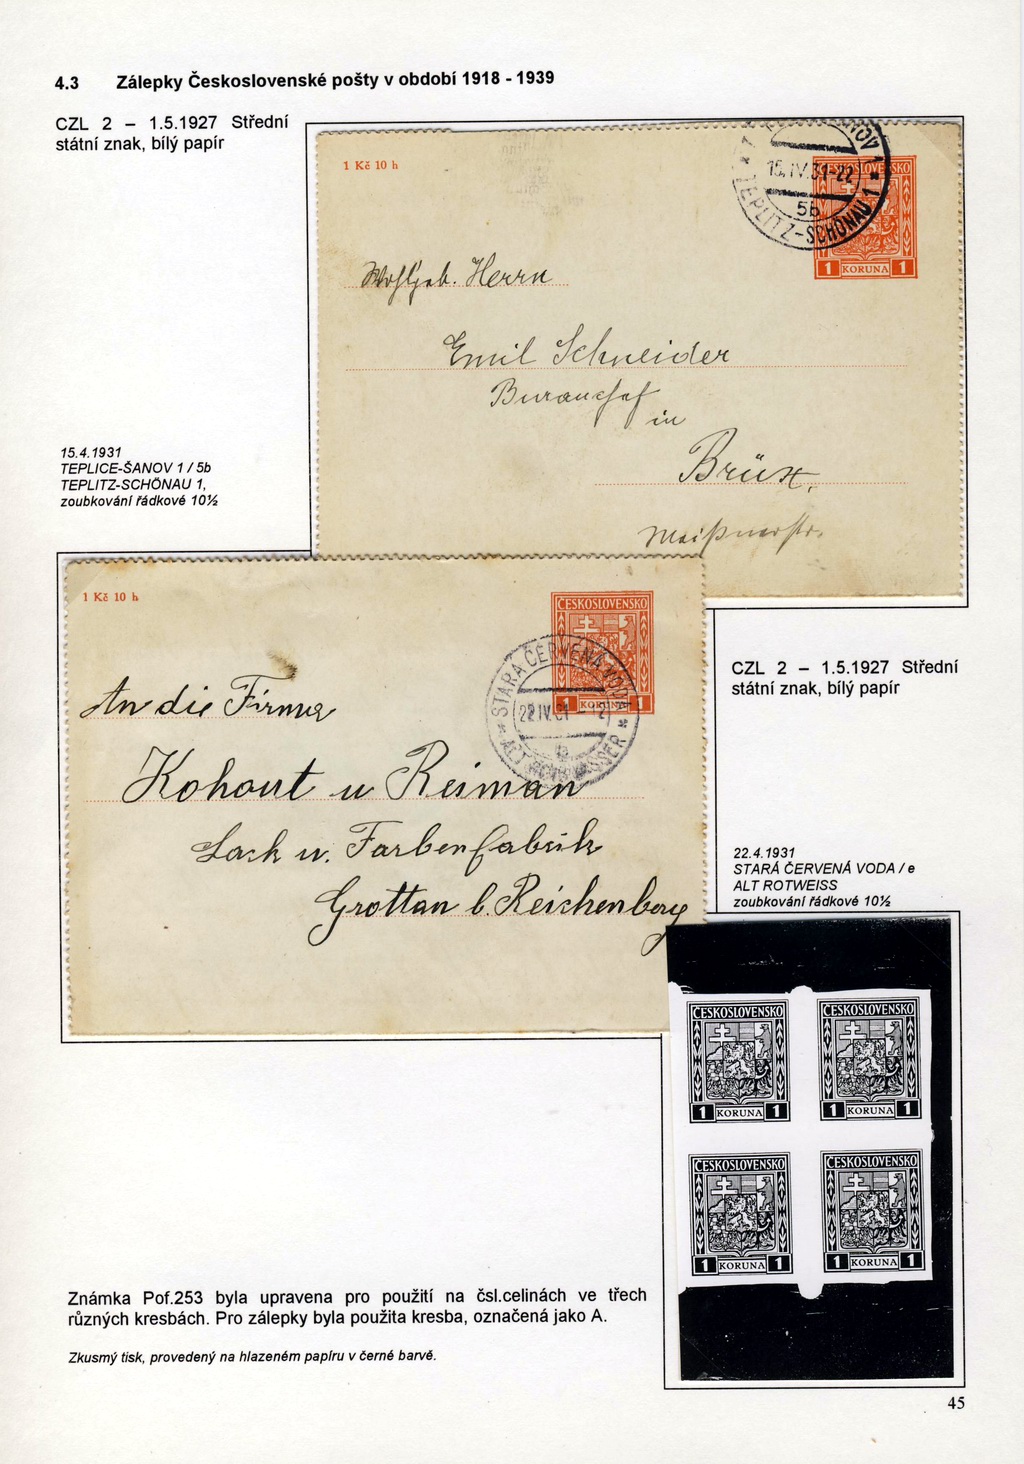 4.3 Zálepky Československé pošty v období 1918 - 1939
CZL 2 – 1.5.1927 Střední
státní znak, bílý papír
1 Kč 10 h
15.IV.31-22
5b
TEPLITZ-SCHÖNAU 1
ČESKOSLOVENSKO
1 KORUNA 1
Wohlgeb. Herrn
Emil Schneider
Burauchef
in
Brüx.
Meißnerstr.
15.4.1931
TEPLICE-ŠANOV 1 / 5b
TEPLITZ-SCHÖNAU 1,
zoubkování řádkové 10½
1 Kč 10 h
ČESKOSLOVENSKO
1 KORUNA 1
STARÁ ČERVENÁ VODA
22.IV.31
An die Firma
Kohout u Reiman
Lack u. Farbenfabrik
Grottau b. Reichenberg
CZL 2 – 1.5.1927 Střední
státní znak, bílý papír
22.4.1931
STARÁ ČERVENÁ VODA / e
ALT ROTWEISS
zoubkování řádkové 10½
ČESKOSLOVENSKO ČESKOSLOVENSKO
1 KORUNA 1 1 KORUNA 1
ČESKOSLOVENSKO ČESKOSLOVENSKO
1 KORUNA 1 1 KORUNA 1
Známka Pof.253 byla upravena pro použití na čsl.celinách ve třech
různých kresbách. Pro zálepky byla použita kresba, označená jako A.
Zkusmý tisk, provedený na hlazeném papíru v černé barvě.
45